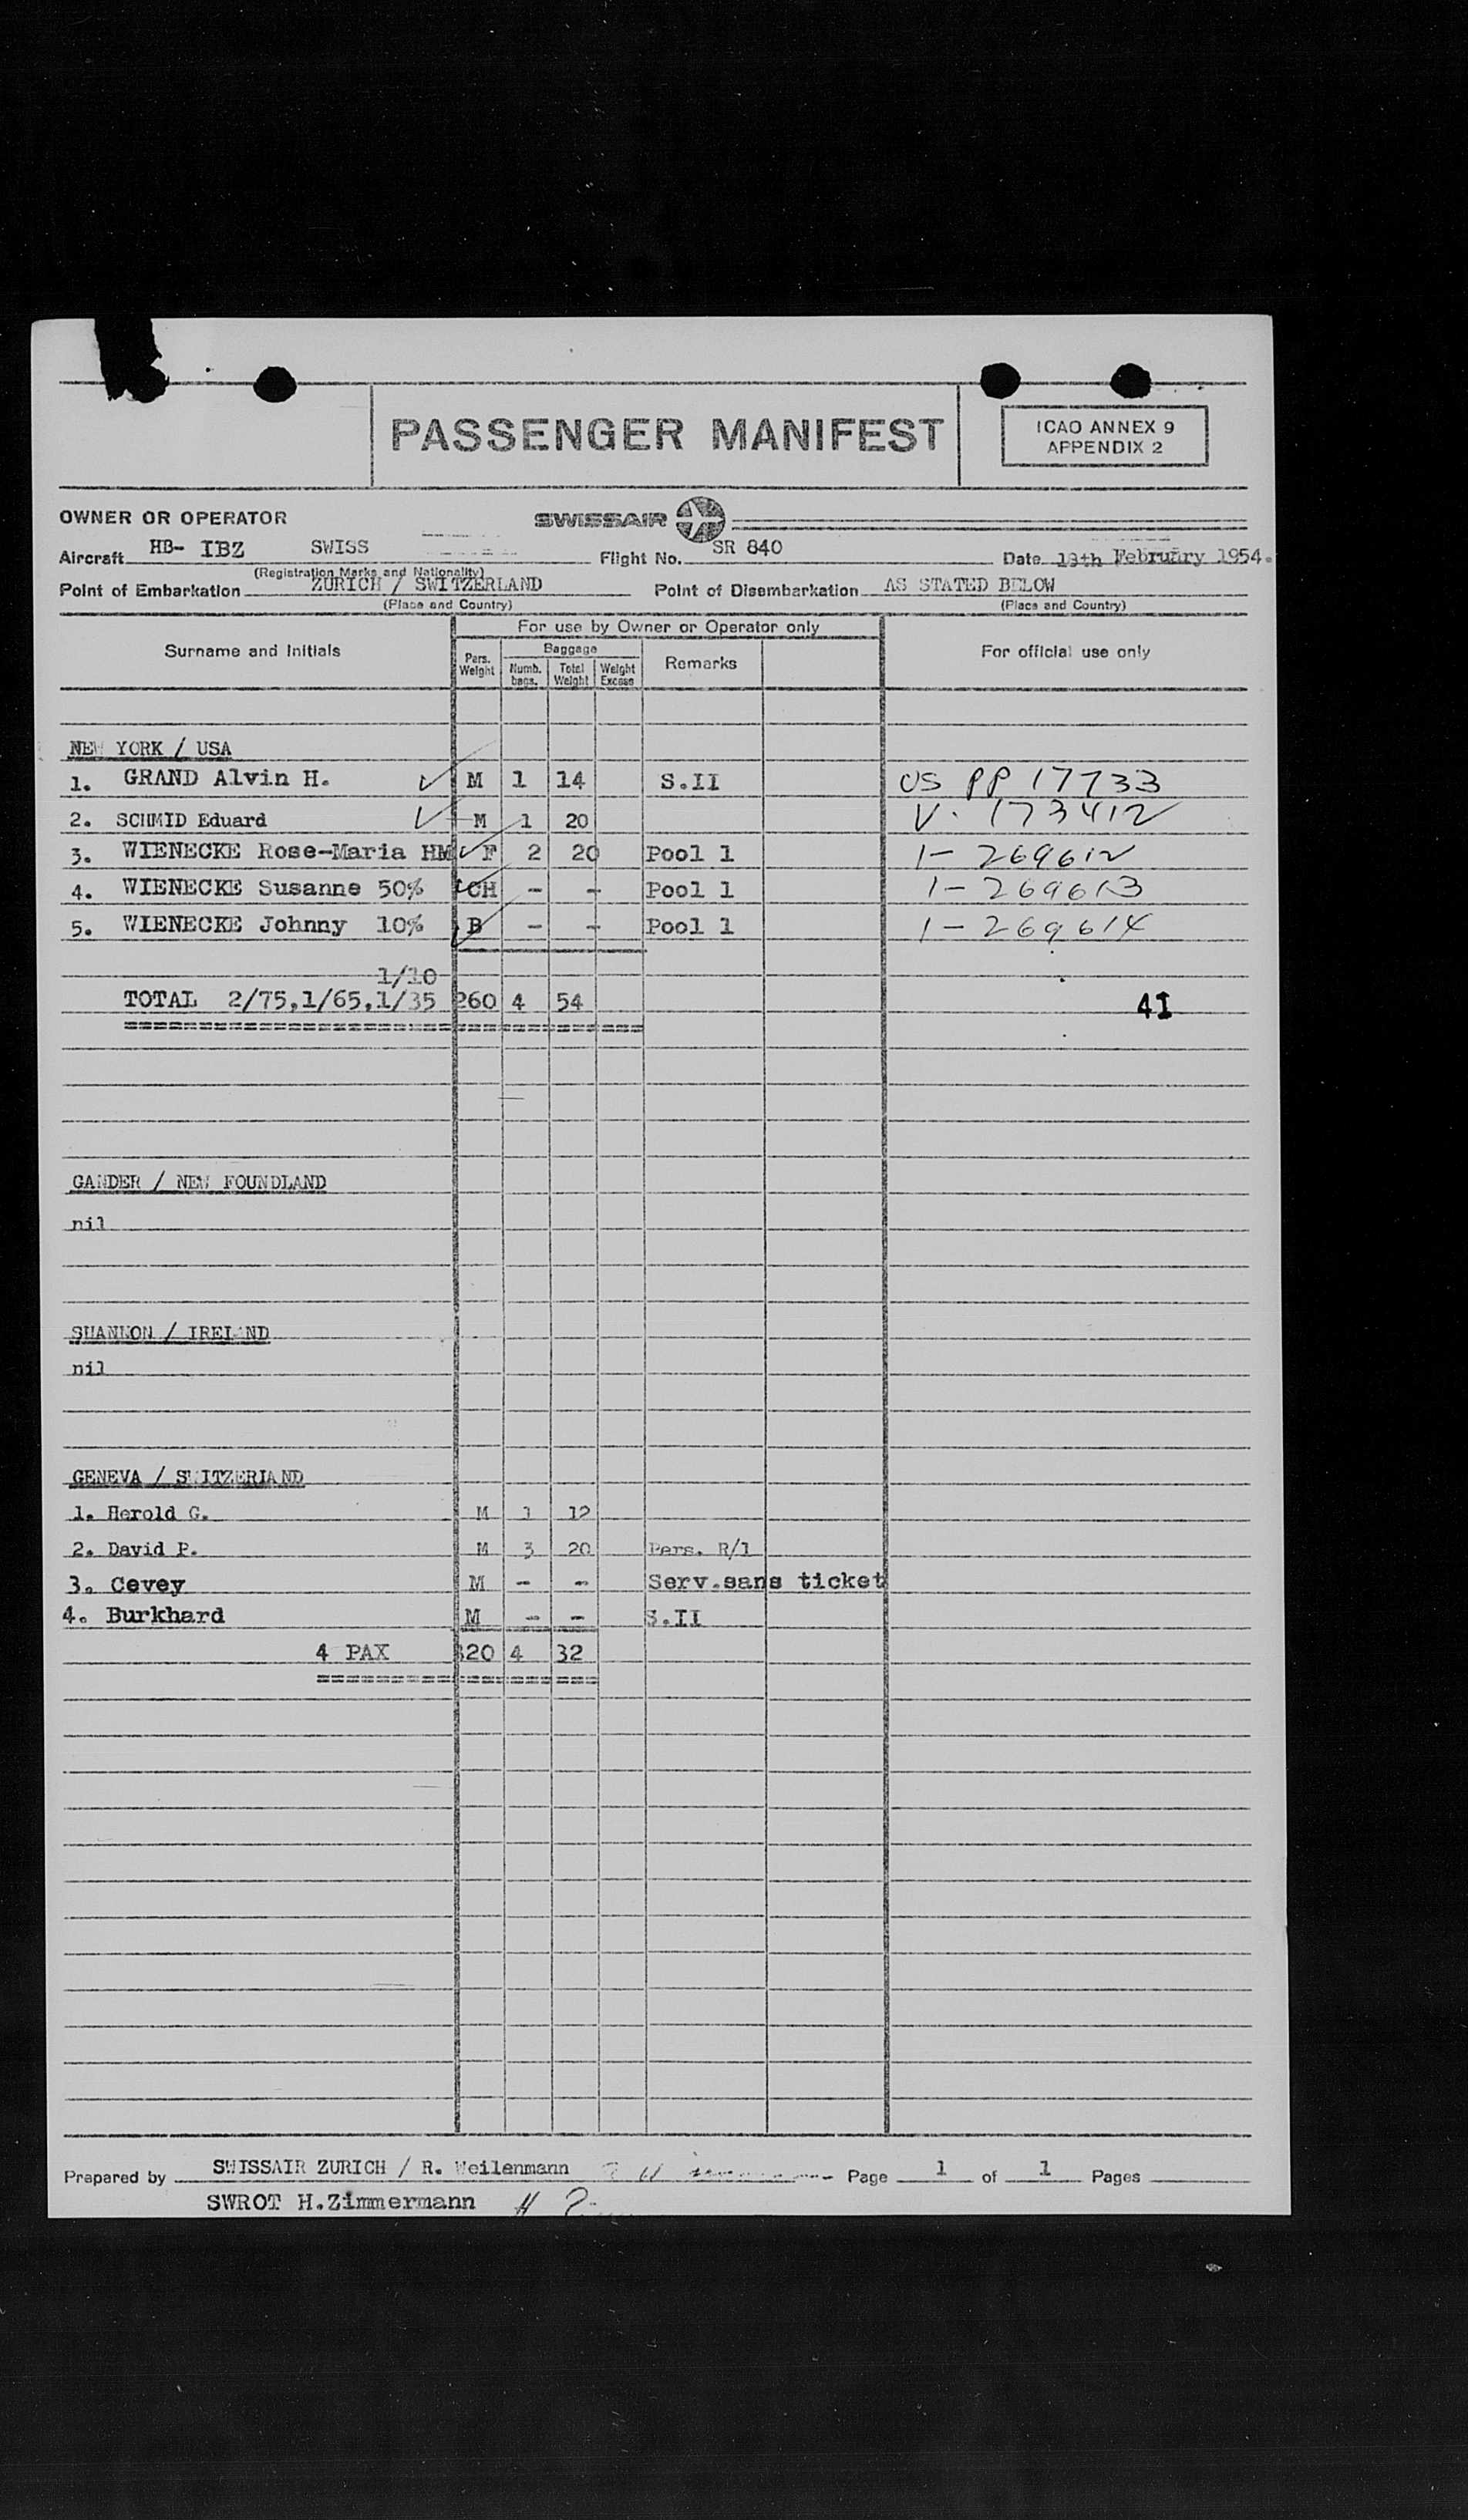 PASSENGER MANIFEST
ICAO ANNEX 9
APPENDIX 2
OWNER OR OPERATOR SWISSAIR
Aircraft HB- IBZ SWISS Flight No. SR 840 Date 19th February 1954.
(Registration Marks and Nationality)
Point of Embarkation ZURICH / SWITZERLAND Point of Disembarkation AS STATED BELOW
(Place and Country) (Place and Country)
For use by Owner or Operator only
Surname and Initials Pers. Weight Baggage Numb. bags. Total Weight Weight Excess Remarks For official use only
NEW YORK / USA
1. GRAND Alvin H. M 1 14 S.II US PP 17733
2. SCHMID Eduard M 1 20 V. 173412
3. WIENECKE Rose-Maria HM F 2 20 Pool 1 1- 269612
4. WIENECKE Susanne 50% CH - - Pool 1 1- 269613
5. WIENECKE Johnny 10% B - - Pool 1 1- 269614
1/10
TOTAL 2/75,1/65,1/35 260 4 54 41
GANDER / NEW FOUNDLAND
nil
SHANNON / IRELAND
nil
GENEVA / SWITZERLAND
1. Herold G. M 1 12
2. David P. M 3 20 Pers. R/1
3. Cevey M - - Serv.sans ticket
4. Burkhard M - - S.II
4 PAX 320 4 32
Prepared by SWISSAIR ZURICH / R. Weilenmann Page 1 of 1 Pages
SWROT H.Zimmermann